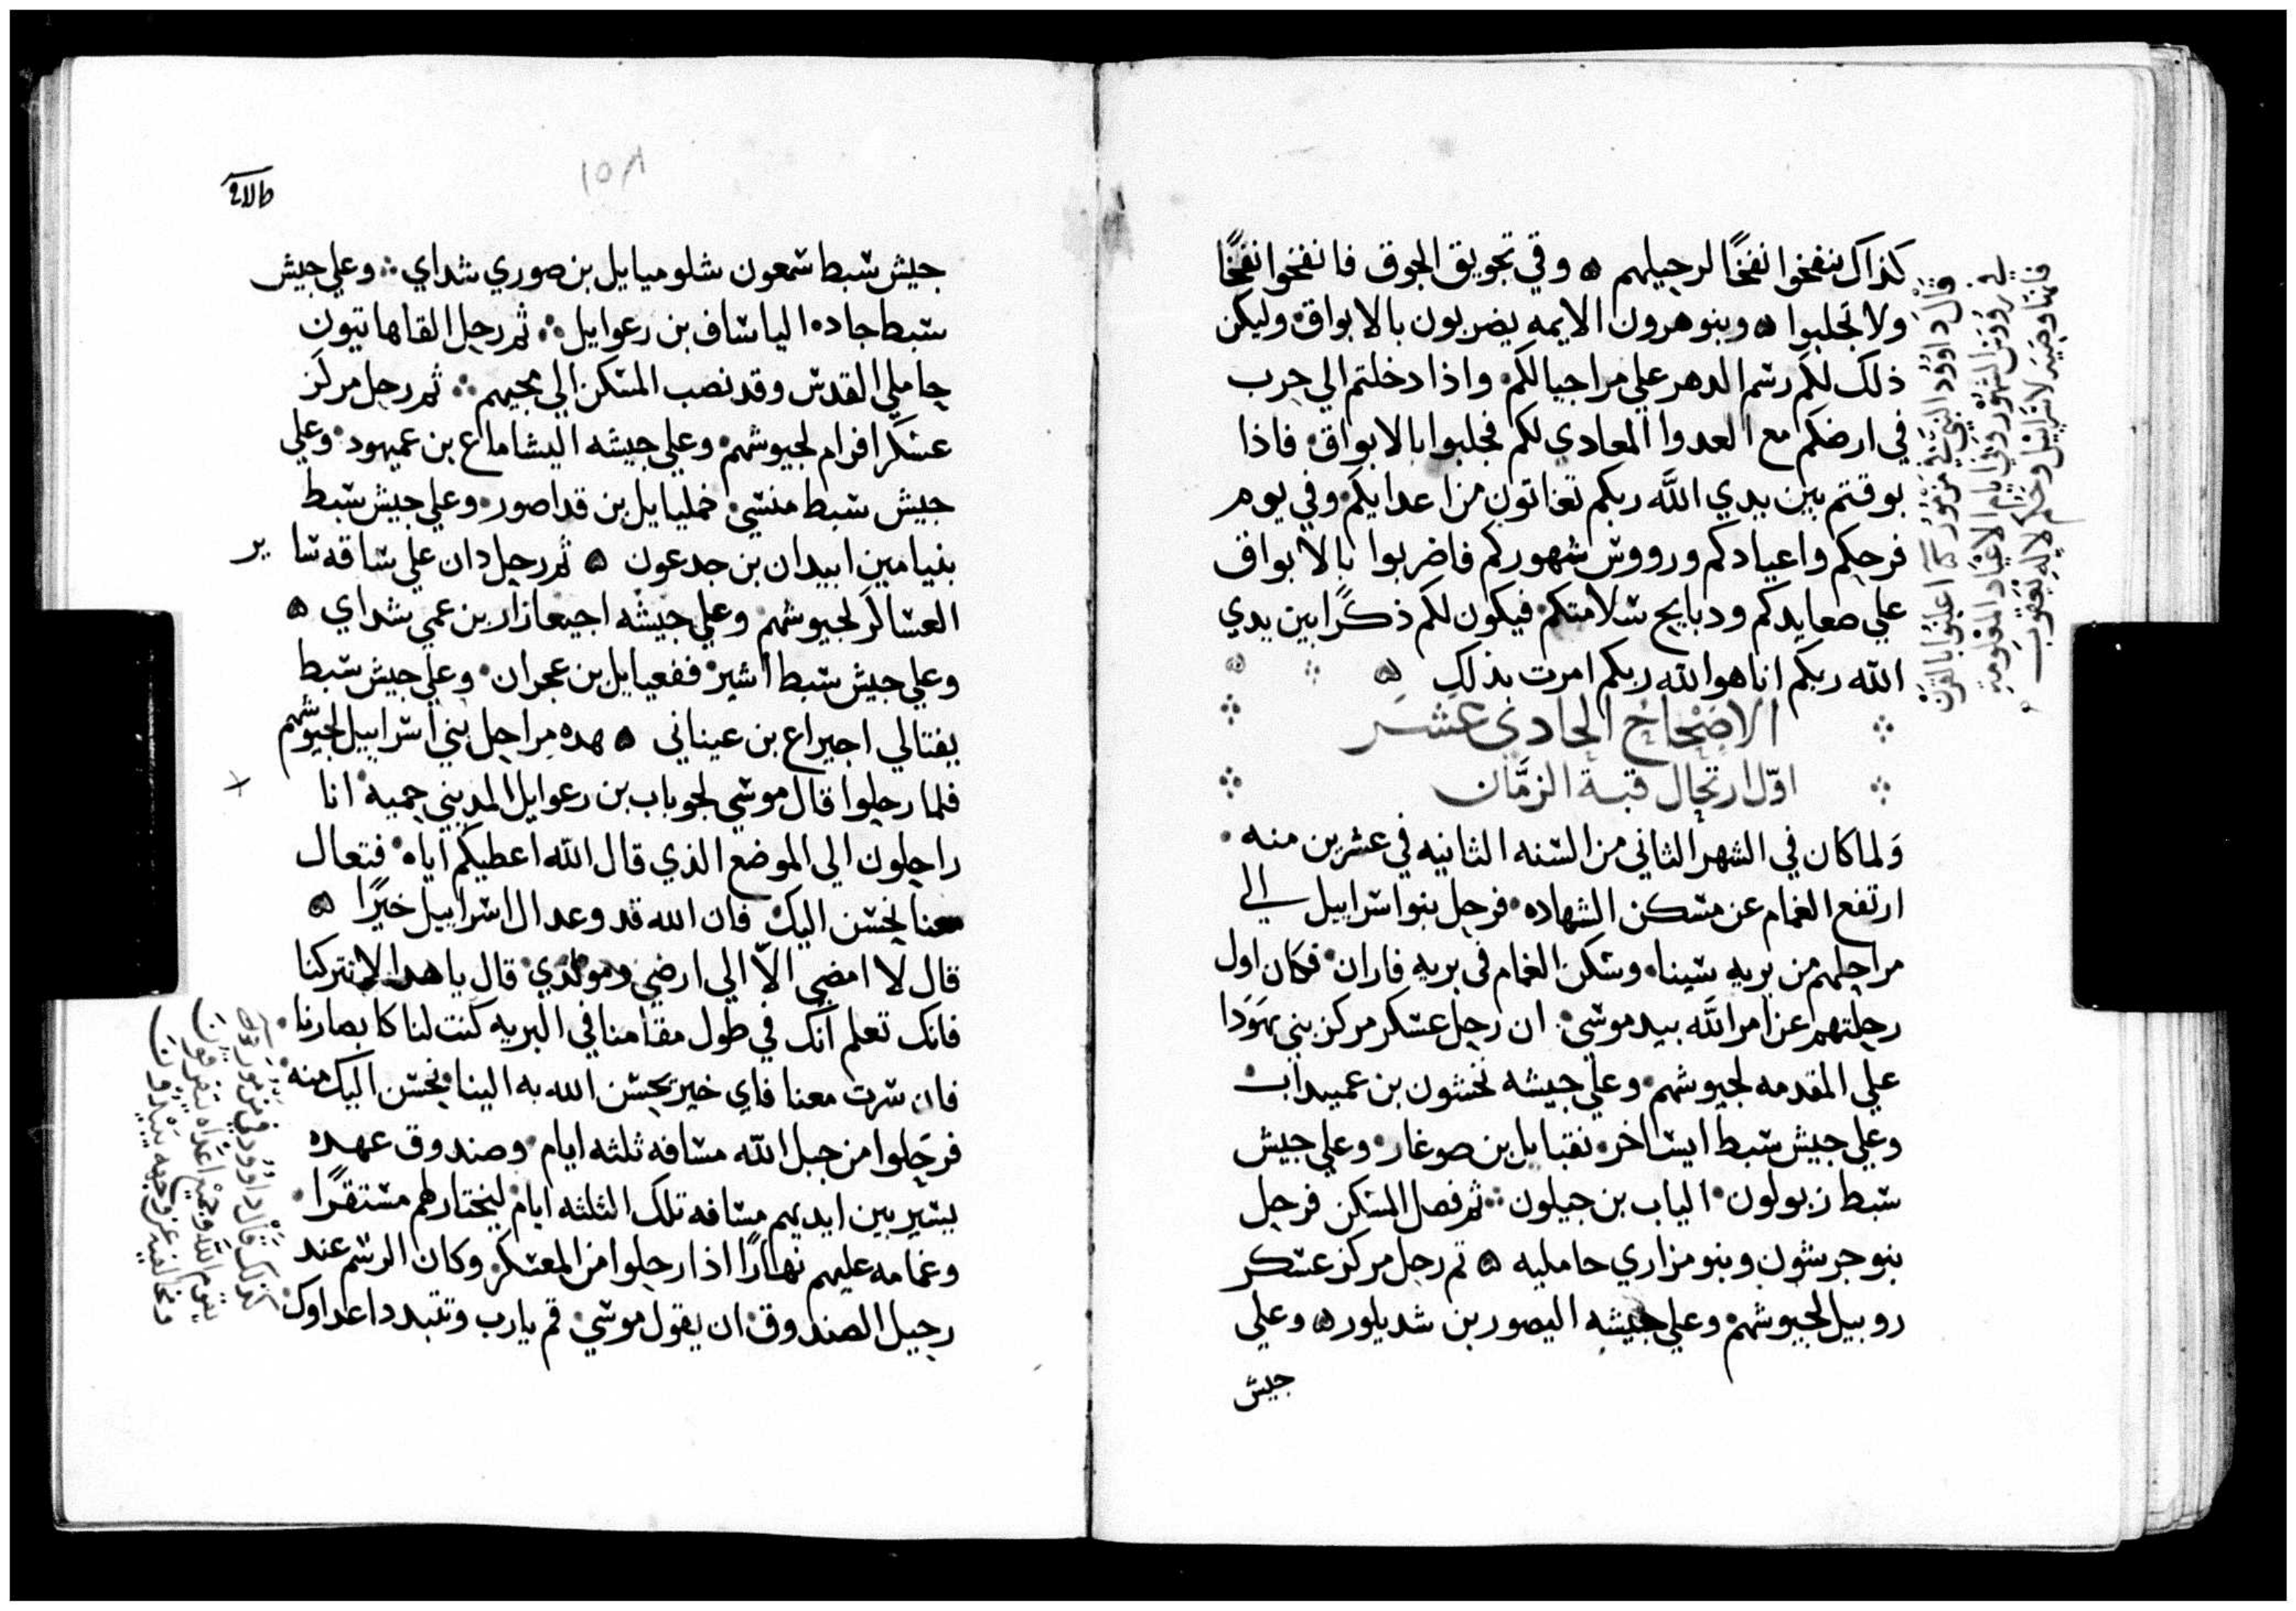 كذاك ننفخوا نفخًا لرحيلهم ۵ وفي تجويق الجوق فانفخوا نفخًا
ولا تجلبوا ۵ وبنو هرون الايمه يضربون بالابواق وليكن
ذلك لكم رسم الدهر علي مر اجيالكم واذا دخلتم الي حرب
في ارضكم مع العدوا المعادي لكم فجلبوا بالابواق فاذا
بوقتم بين يدي الله ربكم تغاثون من اعدايكم وفي يوم
فرحكم واعيادكم ورووس شهوركم فاضربوا بالابواق
علي صعايدكم ودبايح سلامتكم فيكون لكم ذكرًا بين يدي
الله ربكم انا هو الله ربكم امرت بذلك ۵
الاصحاح الحادي عشر
اوّل ارتحال قبة الزمَّان
ولما كان في الشهر الثاني من السنه الثانيه في عشرين منه
ارتفع الغمام عن مسكن الشهاده فرحل بنو اسراييل الي
مراحلهم من بريه سينا وسكن الغمام في بريه فاران فكان اول
رحلتهم عن امر الله بيد موسي ان رحل عسكر مركز بني يهودا
علي المقدمه لجيوشهم وعلي جيشه نحشون بن عميداب
وعلي جيش سبط ايساخر نفتنايل بن صوغار وعلي جيش
سبط زبولون الياب بن حيلون ثم فصل المسكن فرحل
بنو جرشون وبنو مراري حامليه ۵ تم رحل مركز عسكر
روبيل لجيوشهم وعلي جيشه اليصور بن شديلور ۵ وعلي
جيش
قال داوود النبي في مزمور اعلنوا بالقرن
في رووس الشهور وفي ايام الاعياد المعلومه
فانها وصيه لاسراييل وحكم لاله يعقوب
١٥٨
جيش سبط شمعون شلوميايل بن صوري شداي وعلي جيش
سبط جاده الياساف بن رعوايل ثم رحل القاهاتيون
حاملي القدس وقد نصب المسكن الي مجيهم ثم رحل مركز
عسكر افرام لجيوشهم وعلي جيشه اليشاماع بن عميهود وعلي
جيش سبط منسي خمليايل بن قداصور وعلي جيش سبط
بنيامين ابيدان بن جدعون ۵ ثم رحل دان علي ساقه ساير
العساكر لجيوشهم وعلي جيشه اجيعازار بن عمي شداي ۵
وعلي جيش سبط اشير ففعيايل بن عجران وعلي جيش سبط
يفتالي اجيراع بن عيناني ۵ هده مراحل بني اسراييل لجيوشهم
فلما رحلوا قال موسي لحوباب بن رعوايل المديني حميه انا
راحلون الي الموضع الذي قال الله اعطيكم اياه فتعال
معنا نحسن اليك فان الله قد وعد ال اسراييل خيرًا ۵
قال لا امضي الاّ الي ارضي ومولدي قال يا هدا لا تتركنا
فانك تعلم انك في طول مقامنا في البريه كنت لنا كابصارنا
فان سرت معنا فاي خير يحسن الله به الينا نحسن اليك منه
فرحلوا من جبل الله مسافه ثلثه ايام وصندوق عهده
يسير بين ايديهم مسافه تلك الثلثه ايام ليختار لهم مستقرًا
وغمامه عليهم نهارًا اذا رحلوا من المعسكر وكان الرسم عند
رحيل الصندوق ان يقول موسي قم يارب وتتبدد اعداوك
كذلك قال داوود في مزمور
يقوم الله وجميع اعداه يتفرقون
ومخالفيه عن وجهه يبيدون